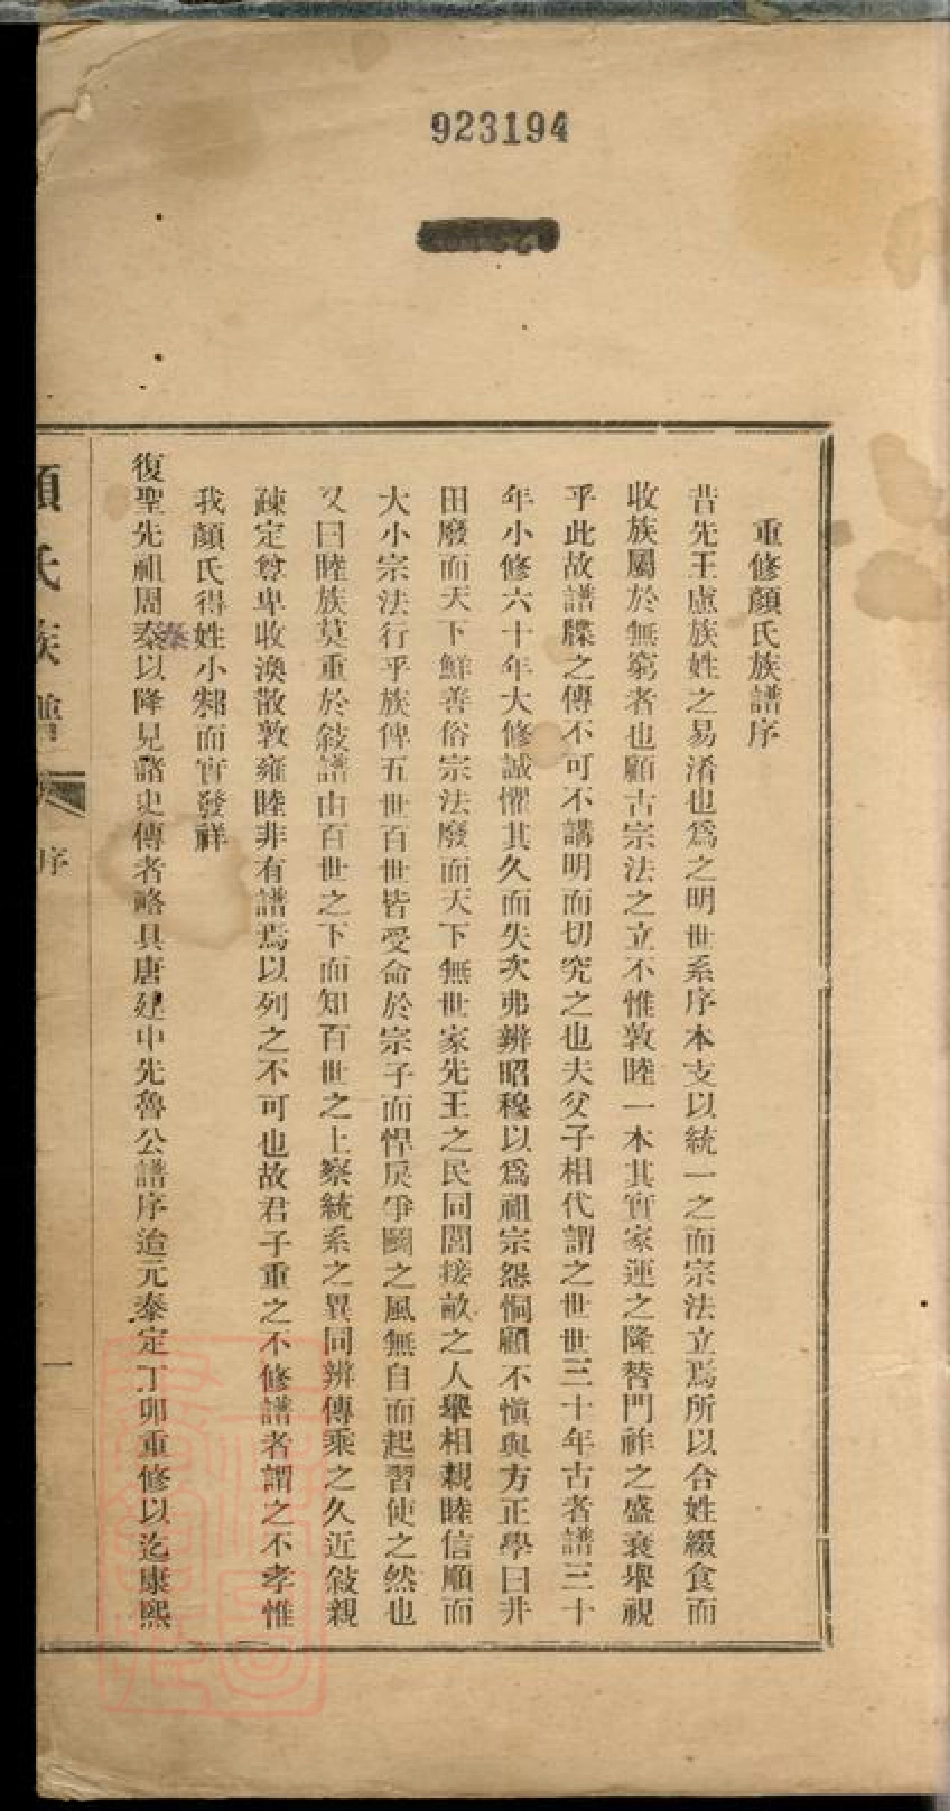 923194
重修顏氏族譜序
昔先王慮族姓之易淆也爲之明世系序本支以統一之而宗法立焉所以合姓綴食而
收族屬於無窮者也顧古宗法之立不惟敦睦一本其實家運之隆替門祚之盛衰舉視
乎此故譜牒之傳不可不講明而切究之也夫父子相代謂之世世三十年古者譜三十
年小修六十年大修誠懼其久而失次弗辨昭穆以爲祖宗怨恫顧不愼與方正學曰井
田廢而天下鮮善俗宗法廢而天下無世家先王之民同閭接畝之人舉相親睦信順而
大小宗法行乎族俾五世百世皆受命於宗子而悍戾爭鬭之風無自而起習使之然也
又曰睦族莫重於敍譜由百世之下而知百世之上察統系之異同辨傳乘之久近敍親
疎定尊卑收渙散敦雍睦非有譜焉以列之不可也故君子重之不修譜者謂之不孝惟
我顏氏得姓小邾而實發祥
復聖先祖周秦以降見諸史傳者略具唐建中先魯公譜序迨元泰定丁卯重修以迄康熙
顏氏族譜
序
一